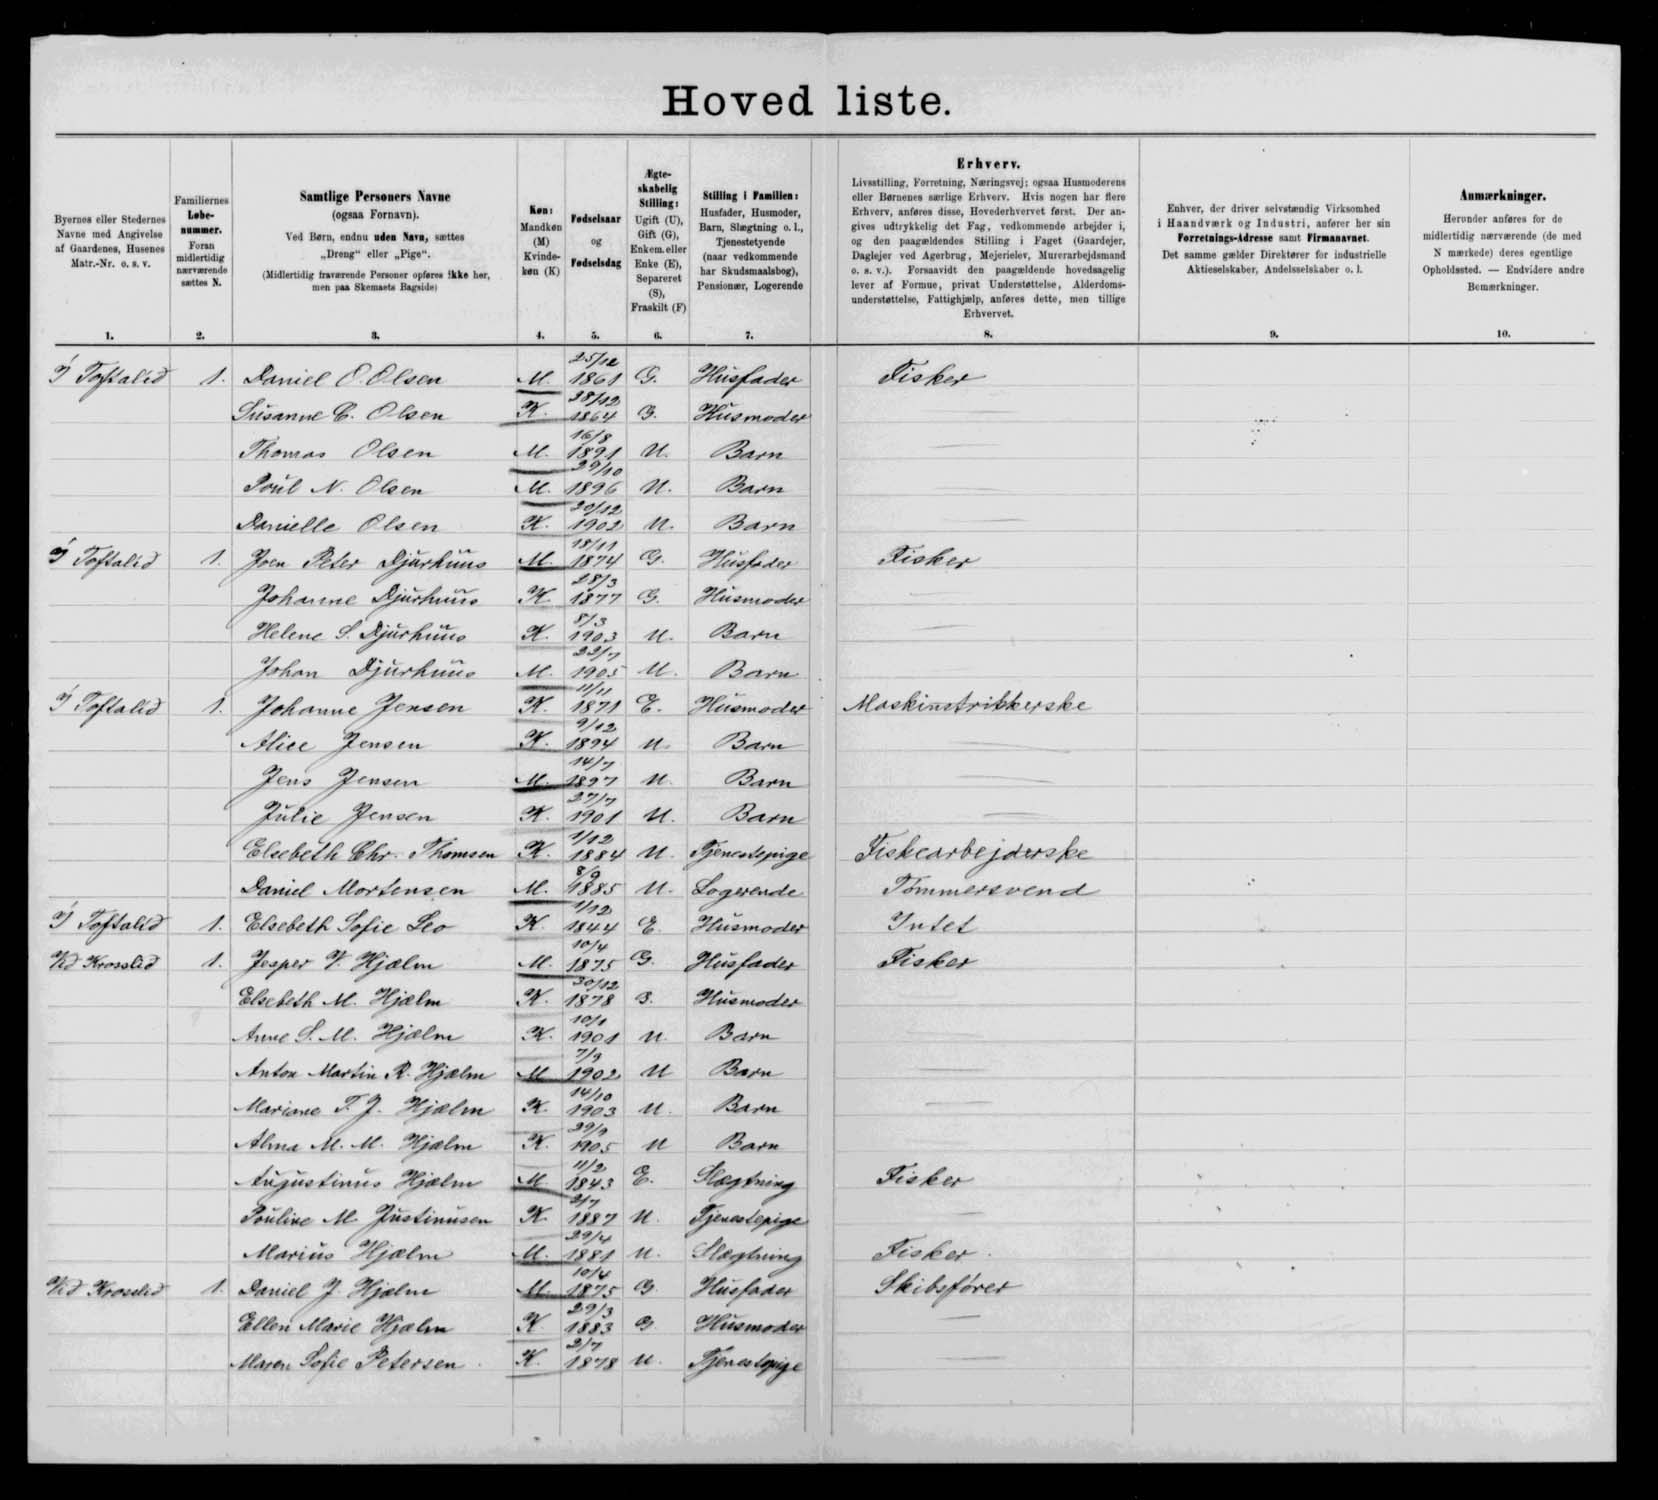 Hoved liste.
Byernes eller Stedernes Navne med Angivelse af Gaardenes, Husenes Matr.-Nr. o. s. v.
Familiernes Løbe-nummer. Foran midlertidig nærværende sættes N.
Samtlige Personers Navne (ogsaa Fornavn). Ved Børn, endnu uden Navn, sættes „Dreng“ eller „Pige“. (Midlertidig fraværende Personer opføres ikke her, men paa Skemaets Bagside)
Køn: Mandkøn (M) Kvinde-køn (K)
Fødselsaar og Fødselsdag
Ægte-skabelig Stilling: Ugift (U), Gift (G), Enkem. eller Enke (E), Separeret (S), Fraskilt (F)
Stilling i Familien: Husfader, Husmoder, Barn, Slægtning o. l., Tjenestetyende (naar vedkommende har Skudsmaalsbog), Pensionær, Logerende
Erhverv. Livsstilling, Forretning, Næringsvej; ogsaa Husmoderens eller Børnenes særlige Erhverv. Hvis nogen har flere Erhverv, anføres disse, Hovederhvervet først. Der an-gives udtrykkelig det Fag, vedkommende arbejder i, og den paagældendes Stilling i Faget (Gaardejer, Daglejer ved Agerbrug, Mejerielev, Murerarbejdsmand o. s. v.). Forsaavidt den paagældende hovedsagelig lever af Formue, privat Understøttelse, Alderdoms-understøttelse, Fattighjælp, anføres dette, men tillige Erhvervet.
Enhver, der driver selvstændig Virksomhed i Haandværk og Industri, anfører her sin Forretnings-Adresse samt Firmanavnet. Det samme gælder Direktører for industrielle Aktieselskaber, Andelsselskaber o. l.
Anmærkninger. Herunder anføres for de midlertidig nærværende (de med N mærkede) deres egentlige Opholdssted. — Endvidere andre Bemærkninger.
1. 2. 3. 4. 5. 6. 7. 8. 9. 10.
Í Toftalid 1. Daniel O. Olsen M. 25/12 1861 G. Husfader Fisker
Susanne C. Olsen K. 28/12 1864 G. Husmoder
Thomas Olsen M. 16/8 1891 U. Barn
Poul N. Olsen M. 29/10 1896 U. Barn
Danielle Olsen K. 20/12 1902 U. Barn
Í Toftalid 1. Joen Peter Djurhuus M. 18/11 1874 G. Husfader Fisker
Johanne Djurhuus K. 28/3 1877 G. Husmoder
Helene S. Djurhuus K. 8/3 1903 U. Barn
Johan Djurhuus M. 22/7 1905 U. Barn
Í Toftalid 1. Johanne Jensen K. 11/11 1871 E. Husmoder Maskinstrikkerske
Alice Jensen K. 9/12 1894 U. Barn
Jens Jensen M. 14/7 1897 U. Barn
Julie Jensen K. 27/7 1901 U. Barn
Elsebeth Chr. Thomsen K. 1/12 1884 U. Tjenestepige Fiskearbejderske
Daniel Mortensen M. 8/9 1885 U. Logerende Tømmersvend
Í Toftalid 1. Elsebeth Sofie Leo K. 1/12 1844 E. Husmoder Intet
Vid Krosslid 1. Jesper V. Hjælm M. 10/4 1875 G. Husfader Fisker
Elsebeth M. Hjælm K. 30/12 1878 G. Husmoder
Anne S. M. Hjælm K. 10/1 1901 U. Barn
Anton Martin R. Hjælm M 7/9 1902 U Barn
Mariane T. J. Hjælm K. 14/10 1903 U. Barn
Alma M. M. Hjælm K. 29/9 1905 U Barn
Augustinus Hjælm M. 11/2 1843 E. Slægtning Fisker
Pouline M. Justinusen K. 2/7 1887 U. Tjenestepige
Marius Hjælm M. 29/4 1881 U. Slægtning Fisker.
Vid Krosslid 1. Daniel J. Hjælm M. 10/4 1875 G. Husfader Skibsfører
Ellen Marie Hjælm K. 29/3 1883 G. Husmoder
Maren Sofie Petersen K. 2/7 1878 U. Tjenestepige